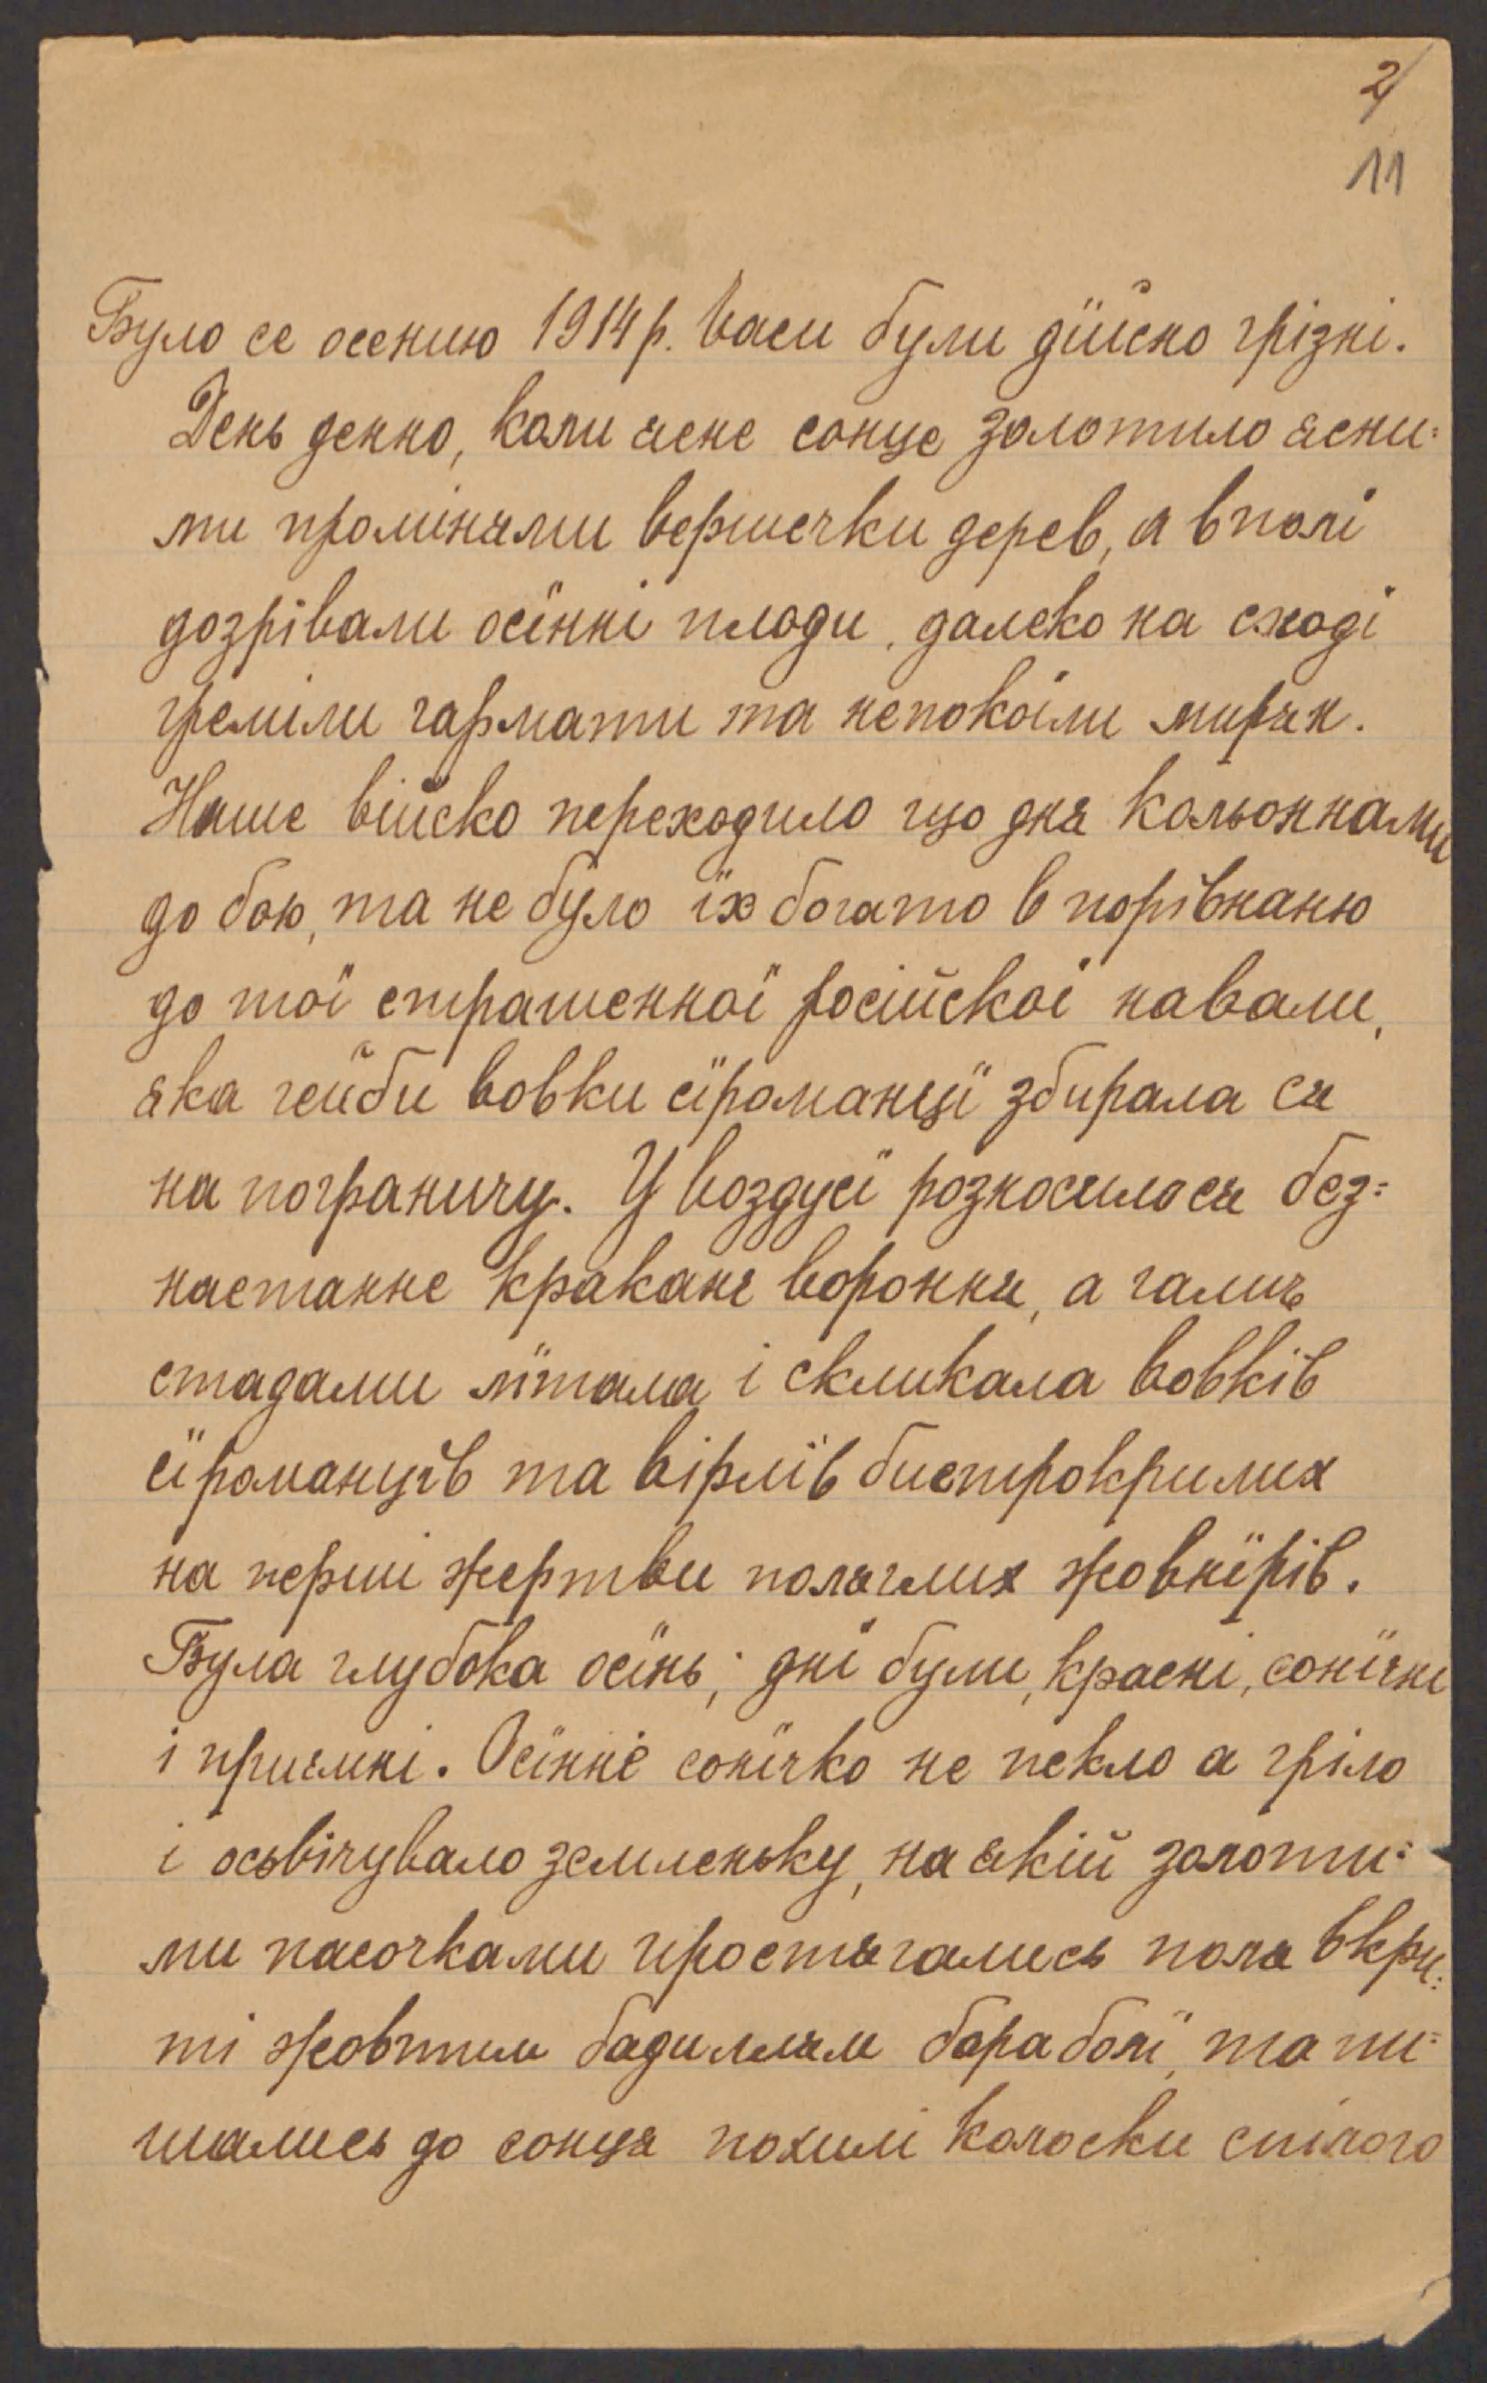 2/
11
Було се осению 1914 р. Часи були дїйсно грізні.
День денно, коли ясне сонце золотило ясни=
ми промінями вершечки дерев, а в поли
дозрівали осїнні плоди, далеко на сході
греміли гармати та непокоїли мирян.
Наше військо переходило що дня кольоннами
до бою, та не було їх богато в порівнаню
до тої страшенної російскої навали,
яка гейби вовки сїроманцї збирала ся
на пограничу. У воздусї розносилося без=
настанне кракане вороння, а галич
стадами лїтала і скликала вовків
сїроманцїв та вірлїв бистрокрилих
на перші жертви поляглих жовнїрів.
Була глубока осїнь; днї були, красні, сонїчні
і приємні. Осїннє сонїчко не пекло а гріло
і осьвічувало земленьку, на якій золоти=
ми пасочками простягались поля вкри=
ті жовтим бадиллям бараболї, та пи=
шались до сонця похилі колоски спілого